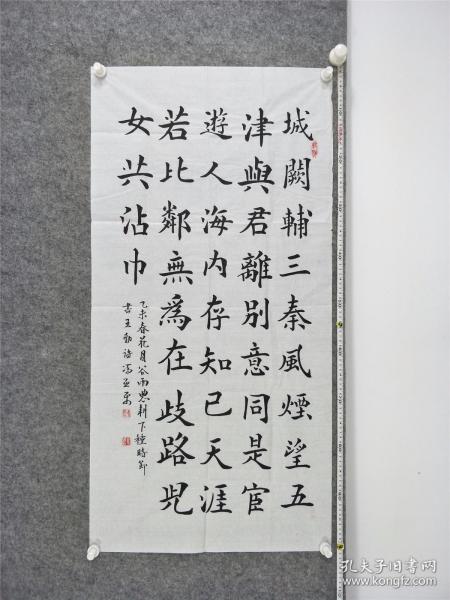 城闕輔三秦風煙望五
津與君離別意同是宦
遊人海內存知己天涯
若比鄰無爲在歧路兒
女共沾巾
乙未春花月谷雨農耕下種時節
書王勃詩
孔夫子旧书网
www.kongfz.com